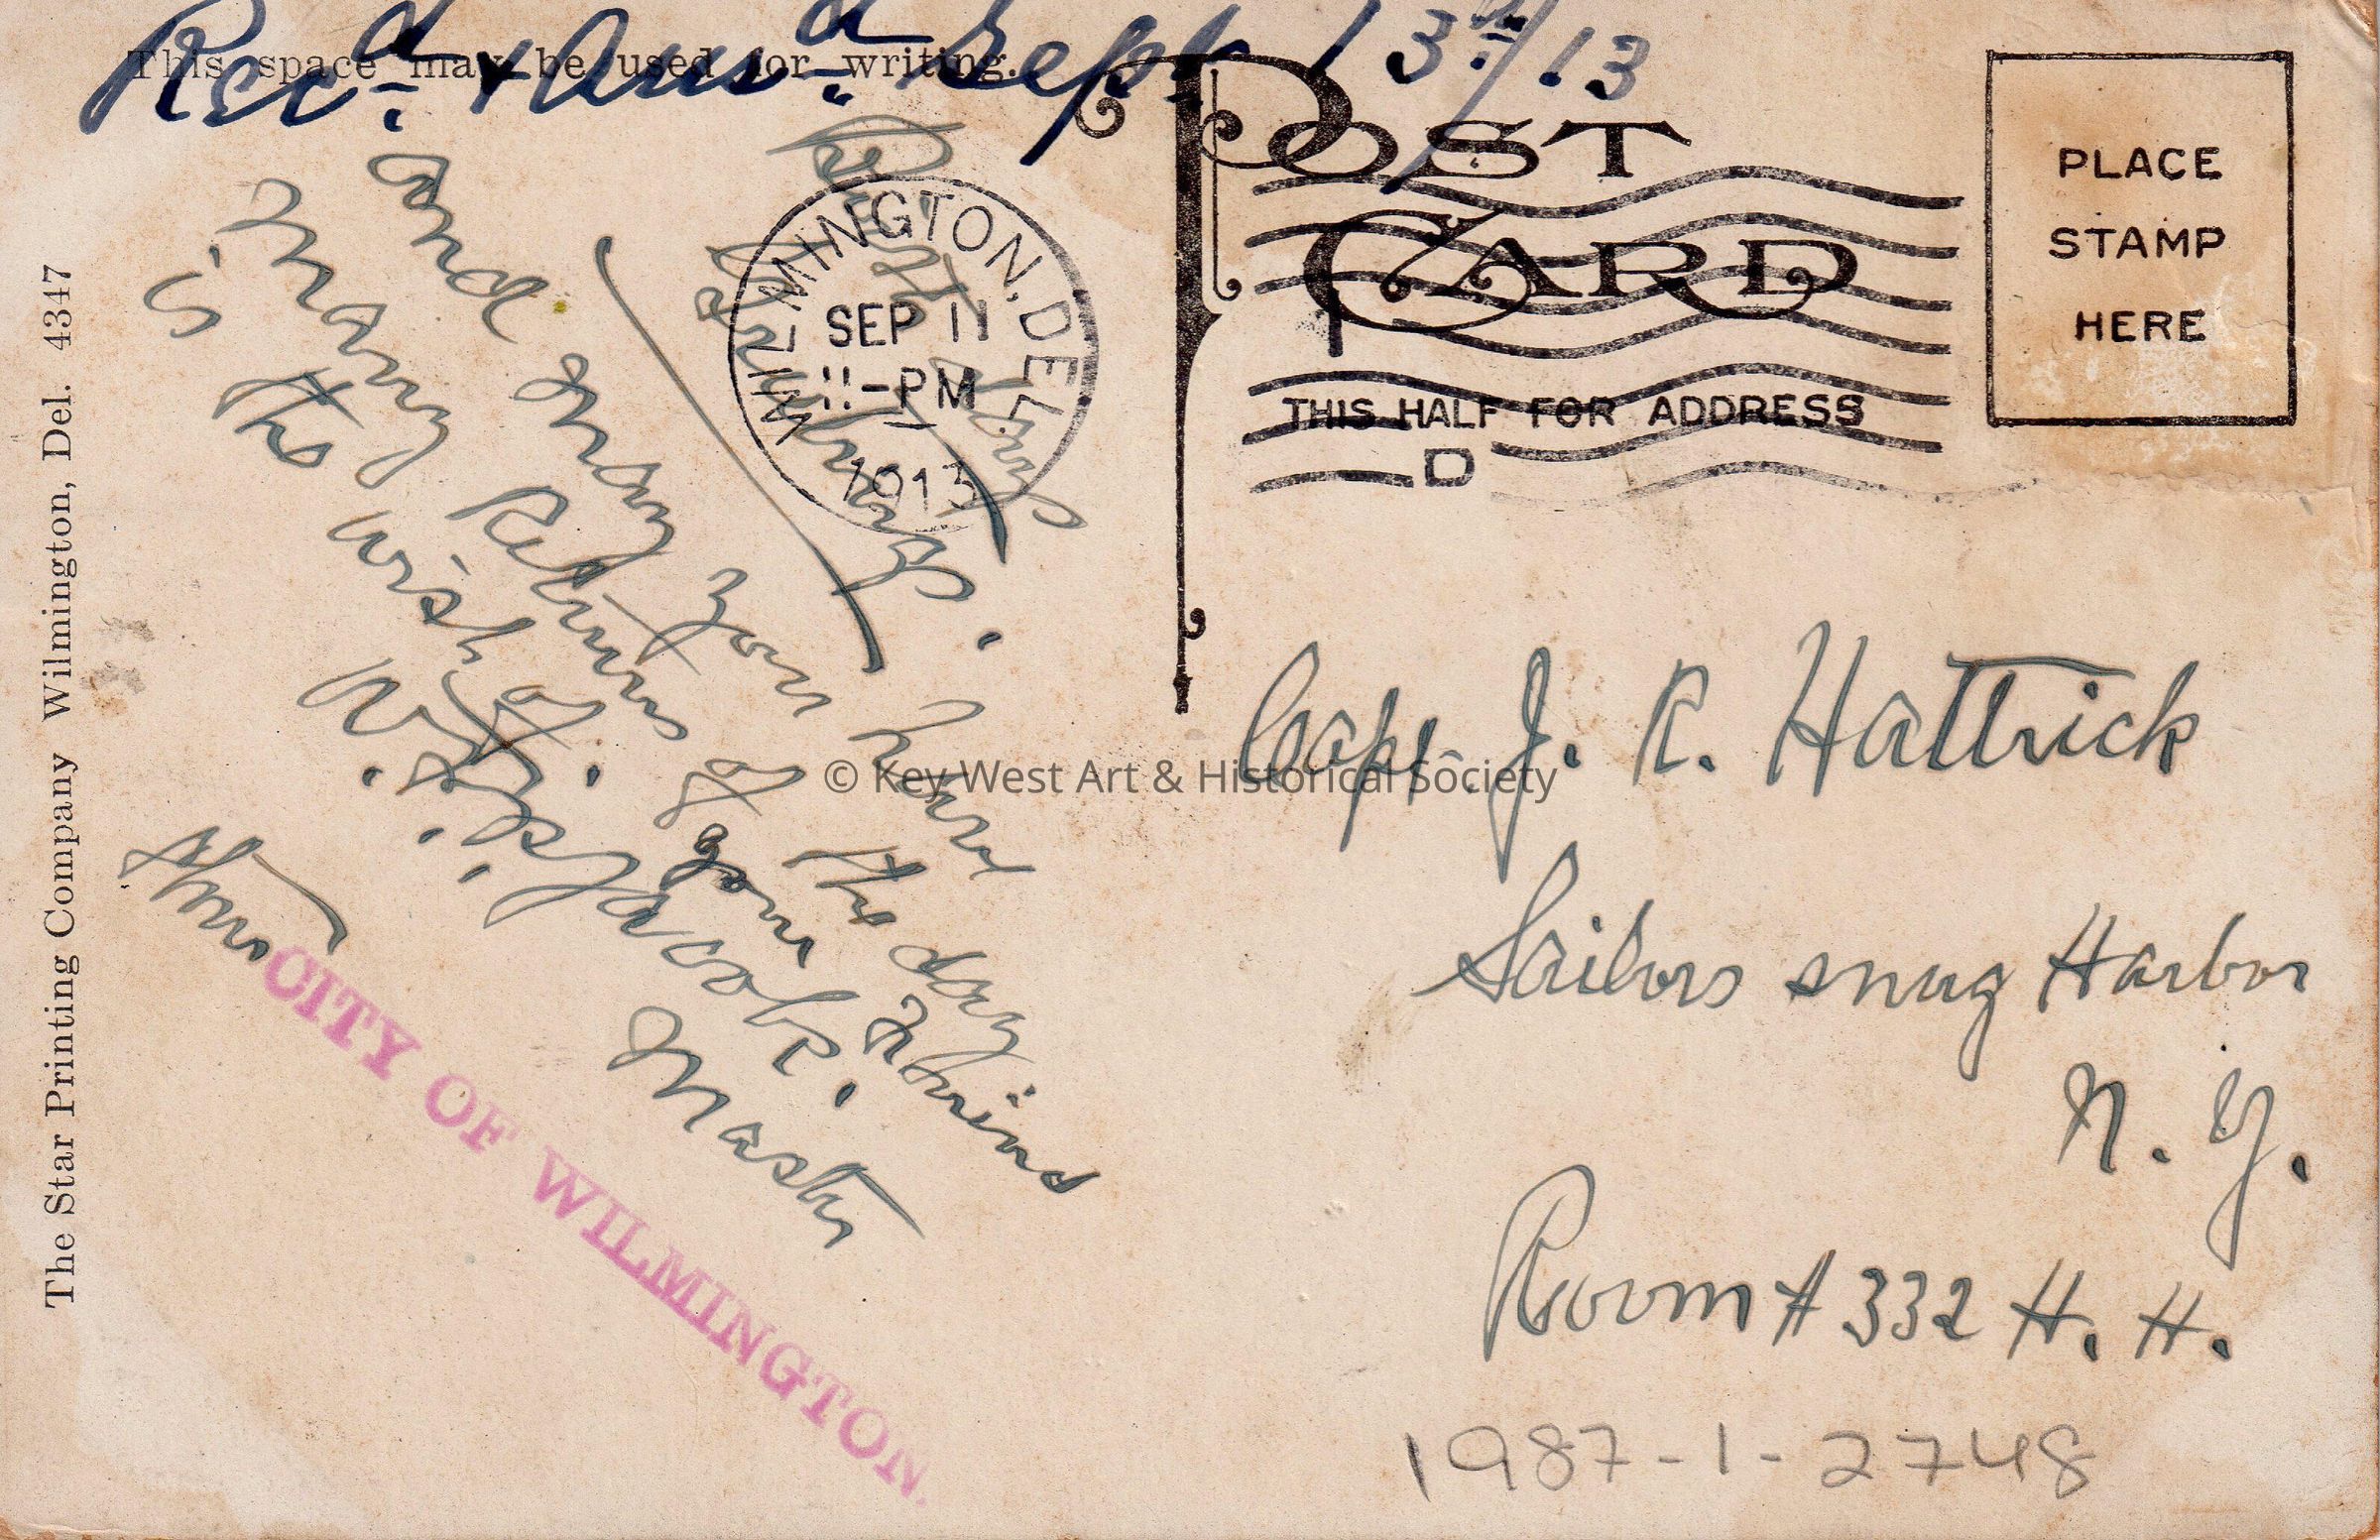 Recd. & Ansd. Sept 13th/13
This space may be used for writing.
POST CARD
PLACE
STAMP
HERE
THIS HALF FOR ADDRESS
WILMINGTON, DEL.
SEP 11
11-PM
1913
D
and may you have
Many Returns of the day
is the wish of your
Jacobs.
Master
Stmr CITY OF WILMINGTON.
Capt. J. R. Hattrick
Sailors snug Harbor
N. Y.
Room # 332 H. H.
1987-1-2748
The Star Printing Company Wilmington, Del. 4347
© Key West Art & Historical Society